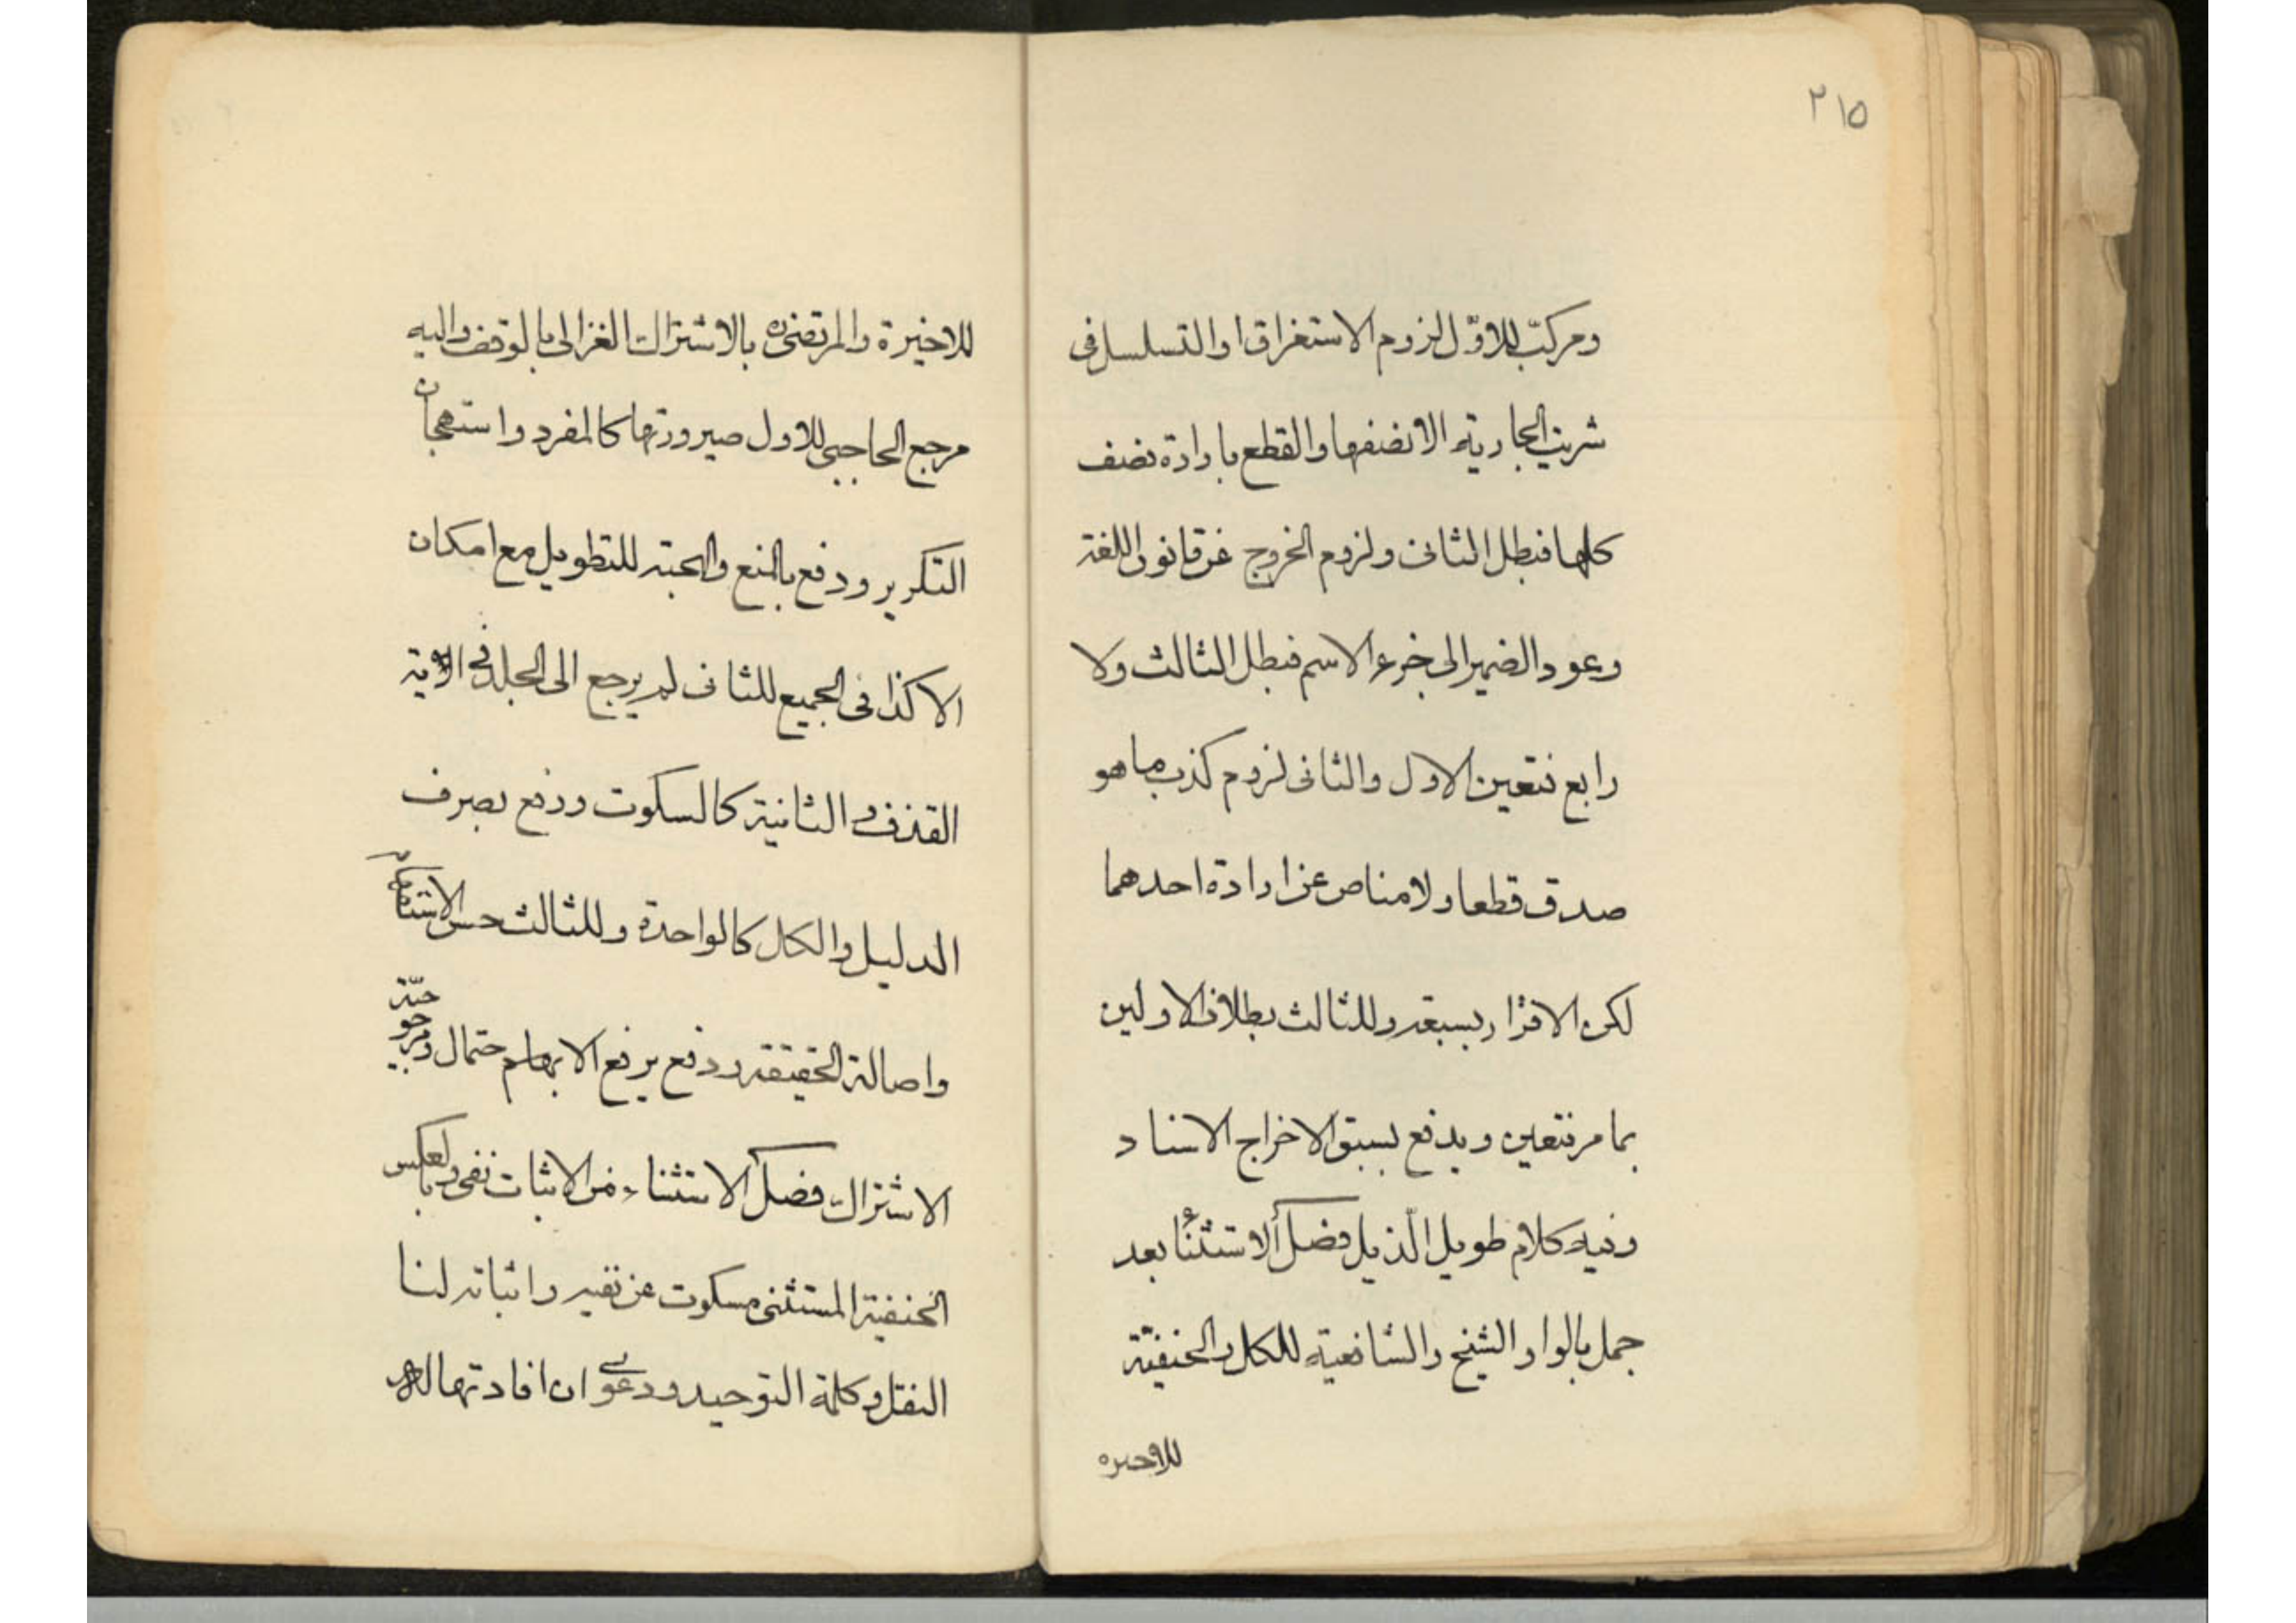 ٢١٥
ومركبّ للاوّل لزوم الاستغراق او التسلسل فى
شريت الجارية الا نصفها والقطع بارادة نصف
كلها فبطل الثانى ولزوم الخروج عن قانون اللغة
وعود الضمير الى جزء الاسم فبطل الثالث ولا
رابع فتعين الاول والثانى لزوم كذب ما هو
صدق قطعا ولا مناص عن ارادة احدهما
لكن الاقرار بسبعة وللثالث بطلان الاولين
بما مر فتعين ويدفع بسبق الاخراج الاسناد
وفيه كلام طويل الذيل فصل الاستثناء بعد
جمل بالواو الشيخ والشافعية للكل والحنفيّة
للاخيره
للاخيرة والمرتضى ره بالاشتراك الغزالى بالوقف واليه
مرجع الحاجبى للاول صيرورتها كالمفرد واستهجان
التكرير ودفع بالمنع والهجنة للتطويل مع امكان
الا كذا فى الجميع للثانى لم يرجع الى الجلد فى الاية
القذف و الثانية كالسكوت ودفع بصرف
الدليل والكل كالواحدة وللثالث حسن الاستفهام
واصالة الحقيقة ودفع برفع الابهام حتمال ومرجوحيّة
الاشتراك فصل الاستثناء من الاثبات نفى وبالعكس
الحنفية المستثنى مسكوت عن نفيه واثباته لنا
النقل وكلمة التوحيد ودعوى ان افادتها له